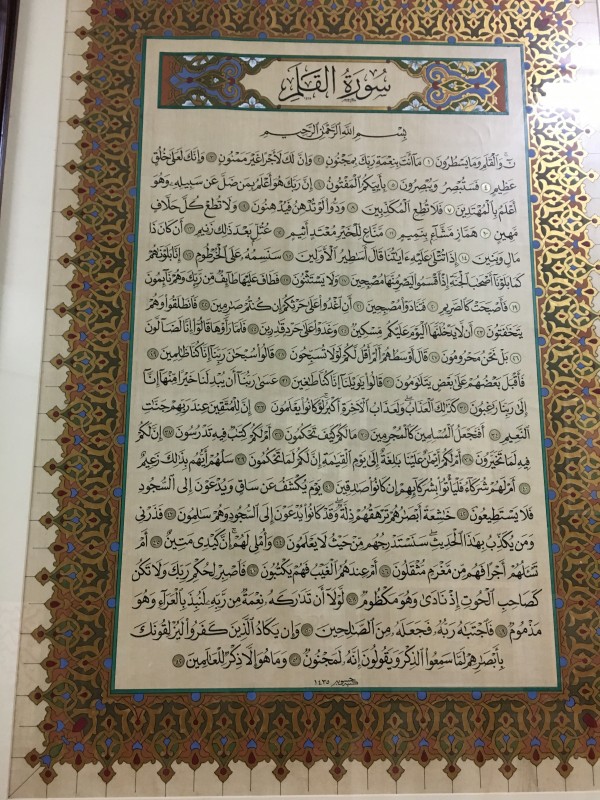 سُورَةُ القَلَمِ
بِسْمِ اللَّهِ الرَّحْمَٰنِ الرَّحِيمِ
نٓ وَالْقَلَمِ وَمَا يَسْطُرُونَ ١ مَا أَنتَ بِنِعْمَةِ رَبِّكَ بِمَجْنُونٍ ٢ وَإِنَّ لَكَ لَأَجْرًا غَيْرَ مَمْنُونٍ ٣ وَإِنَّكَ لَعَلَىٰ خُلُقٍ
عَظِيمٍ ٤ فَسَتُبْصِرُ وَيُبْصِرُونَ ٥ بِأَييِّكُمُ الْمَفْتُونُ ٦ إِنَّ رَبَّكَ هُوَ أَعْلَمُ بِمَن ضَلَّ عَن سَبِيلِهِ وَهُوَ
أَعْلَمُ بِالْمُهْتَدِينَ ٧ فَلَا تُطِعِ الْمُكَذِّبِينَ ٨ وَدُّوا لَوْ تُدْهِنُ فَيُدْهِنُونَ ٩ وَلَا تُطِعْ كُلَّ حَلَّافٍ
مَهِينٍ ١٠ هَمَّازٍ مَشَّاءٍ بِنَمِيمٍ ١١ مَنَّاعٍ لِلْخَيْرِ مُعْتَدٍ أَثِيمٍ ١٢ عُتُلٍّ بَعْدَ ذَٰلِكَ زَنِيمٍ ١٣ أَن كَانَ ذَا
مَالٍ وَبَنِينَ ١٤ إِذَا تُتْلَىٰ عَلَيْهِ آيَاتُنَا قَالَ أَسَاطِيرُ الْأَوَّلِينَ ١٥ سَنَسِمُهُ عَلَى الْخُرْطُومِ ١٦ إِنَّا بَلَوْنَاهُمْ
كَمَا بَلَوْنَا أَصْحَابَ الْجَنَّةِ إِذْ أَقْسَمُوا لَيَصْرِمُنَّهَا مُصْبِحِينَ ١٧ وَلَا يَسْتَثْنُونَ ١٨ فَطَافَ عَلَيْهَا طَائِفٌ مِن رَبِّكَ وَهُمْ نَائِمُونَ
١٩ فَأَصْبَحَتْ كَالصَّرِيمِ ٢٠ فَتَنَادَوْا مُصْبِحِينَ ٢١ أَنِ اغْدُوا عَلَىٰ حَرْثِكُمْ إِن كُنتُمْ صَارِمِينَ ٢٢ فَانطَلَقُوا وَهُمْ
يَتَخَافَتُونَ ٢٣ أَن لَا يَدْخُلَنَّهَا الْيَوْمَ عَلَيْكُم مِسْكِينٌ ٢٤ وَغَدَوْا عَلَىٰ حَرْدٍ قَادِرِينَ ٢٥ فَلَمَّا رَأَوْهَا قَالُوا إِنَّا لَضَالُّونَ
٢٦ بَلْ نَحْنُ مَحْرُومُونَ ٢٧ قَالَ أَوْسَطُهُمْ أَلَمْ أَقُل لَكُمْ لَوْلَا تُسَبِّحُونَ ٢٨ قَالُوا سُبْحَانَ رَبِّنَا إِنَّا كُنَّا ظَالِمِينَ ٢٩
فَأَقْبَلَ بَعْضُهُمْ عَلَىٰ بَعْضٍ يَتَلَاوَمُونَ ٣٠ قَالُوا يَا وَيْلَنَا إِنَّا كُنَّا طَاغِينَ ٣١ عَسَىٰ رَبُّنَا أَن يُبْدِلَنَا خَيْرًا مِنْهَا إِنَّا
إِلَىٰ رَبِّنَا رَاغِبُونَ ٣٢ كَذَٰلِكَ الْعَذَابُ وَلَعَذَابُ الْآخِرَةِ أَكْبَرُ لَوْ كَانُوا يَعْلَمُونَ ٣٣ إِنَّ لِلْمُتَّقِينَ عِندَ رَبِّهِمْ جَنَّاتِ
النَّعِيمِ ٣٤ أَفَنَجْعَلُ الْمُسْلِمِينَ كَالْمُجْرِمِينَ ٣٥ مَا لَكُمْ كَيْفَ تَحْكُمُونَ ٣٦ أَمْ لَكُمْ كِتَابٌ فِيهِ تَدْرُسُونَ ٣٧ إِنَّ لَكُمْ
فِيهِ لَمَا تَخَيَّرُونَ ٣٨ أَمْ لَكُمْ أَيْمَانٌ عَلَيْنَا بَالِغَةٌ إِلَىٰ يَوْمِ الْقِيَامَةِ إِنَّ لَكُمْ لَمَا تَحْكُمُونَ ٣٩ سَلْهُمْ أَيُّهُم بِذَٰلِكَ زَعِيمٌ
٤٠ أَمْ لَهُمْ شُرَكَاءُ فَلْيَأْتُوا بِشُرَكَائِهِمْ إِن كَانُوا صَادِقِينَ ٤١ يَوْمَ يُكْشَفُ عَن سَاقٍ وَيُدْعَوْنَ إِلَى السُّجُودِ
فَلَا يَسْتَطِيعُونَ ٤٢ خَاشِعَةً أَبْصَارُهُمْ تَرْهَقُهُمْ ذِلَّةٌ وَقَدْ كَانُوا يُدْعَوْنَ إِلَى السُّجُودِ وَهُمْ سَالِمُونَ ٤٣ فَذَرْنِي
وَمَن يُكَذِّبُ بِهَٰذَا الْحَدِيثِ سَنَسْتَدْرِجُهُم مِنْ حَيْثُ لَا يَعْلَمُونَ ٤٤ وَأُمْلِي لَهُمْ إِنَّ كَيْدِي مَتِينٌ ٤٥ أَمْ
تَسْأَلُهُمْ أَجْرًا فَهُم مِن مَغْرَمٍ مُثْقَلُونَ ٤٦ أَمْ عِندَهُمُ الْغَيْبُ فَهُمْ يَكْتُبُونَ ٤٧ فَاصْبِرْ لِحُكْمِ رَبِّكَ وَلَا تَكُن
كَصَاحِبِ الْحُوتِ إِذْ نَادَىٰ وَهُوَ مَكْظُومٌ ٤٨ لَوْلَا أَن تَدَارَكَهُ نِعْمَةٌ مِن رَبِّهِ لَنُبِذَ بِالْعَرَاءِ وَهُوَ
مَذْمُومٌ ٤٩ فَاجْتَبَاهُ رَبُّهُ فَجَعَلَهُ مِنَ الصَّالِحِينَ ٥٠ وَإِن يَكَادُ الَّذِينَ كَفَرُوا لَيُزْلِقُونَكَ
بِأَبْصَارِهِمْ لَمَّا سَمِعُوا الذِّكْرَ وَيَقُولُونَ إِنَّهُ لَمَجْنُونٌ ٥١ وَمَا هُوَ إِلَّا ذِكْرٌ لِلْعَالَمِينَ ٥٢
١٤٣٥